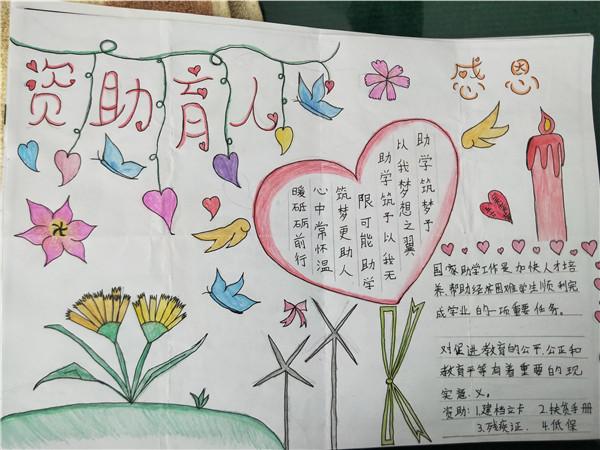 资助育人
感恩
助学筑梦予
以我梦想之翼
助学筑予以我无
限可能助学
筑梦更助人
心中常怀温
暖砥砺前行
国家助学工作是加快人才培
养,帮助经济困难学生顺利完
成学业的一项重要任务。
对促进教育的公平.公正和
教育平等有着重要的现
实意.义。
资助:1.建档立卡 2.扶贫手册
3.残疾证. 4.低保